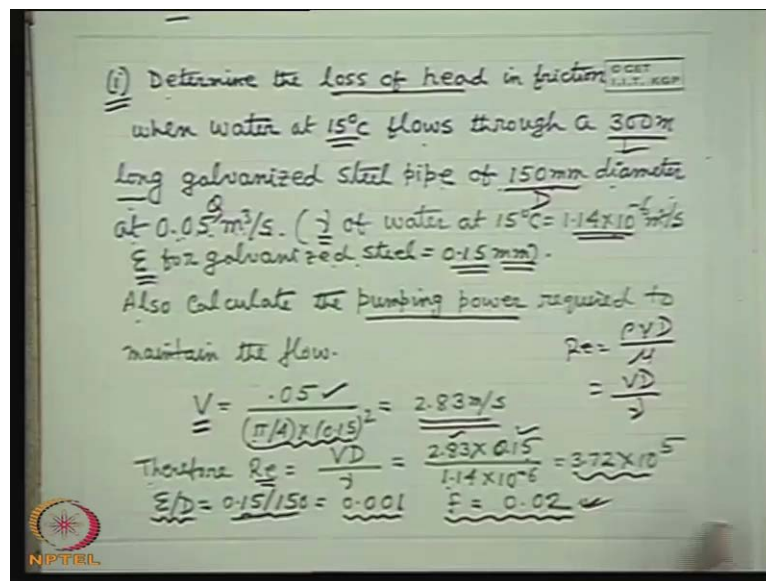 (i) Determine the loss of head in friction
© CET
I.I.T. KGP
when water at 15°C flows through a 300m
L
long galvanized steel pipe of 150mm diameter
Q D
at 0.05 m³/s. (ν of water at 15°C = 1.14×10⁻⁶ m²/s
ε for galvanized steel = 0.15 mm).
Also Calculate the pumping power required to
maintain the flow.
Re = ρVD/μ
= VD/ν
V = .05/(π/4)×(0.15)² = 2.83 m/s
Therefore Re = VD/ν = 2.83×0.15/1.14×10⁻⁶ = 3.72×10⁵
ε/D = 0.15/150 = 0.001 f = 0.02
NPTEL